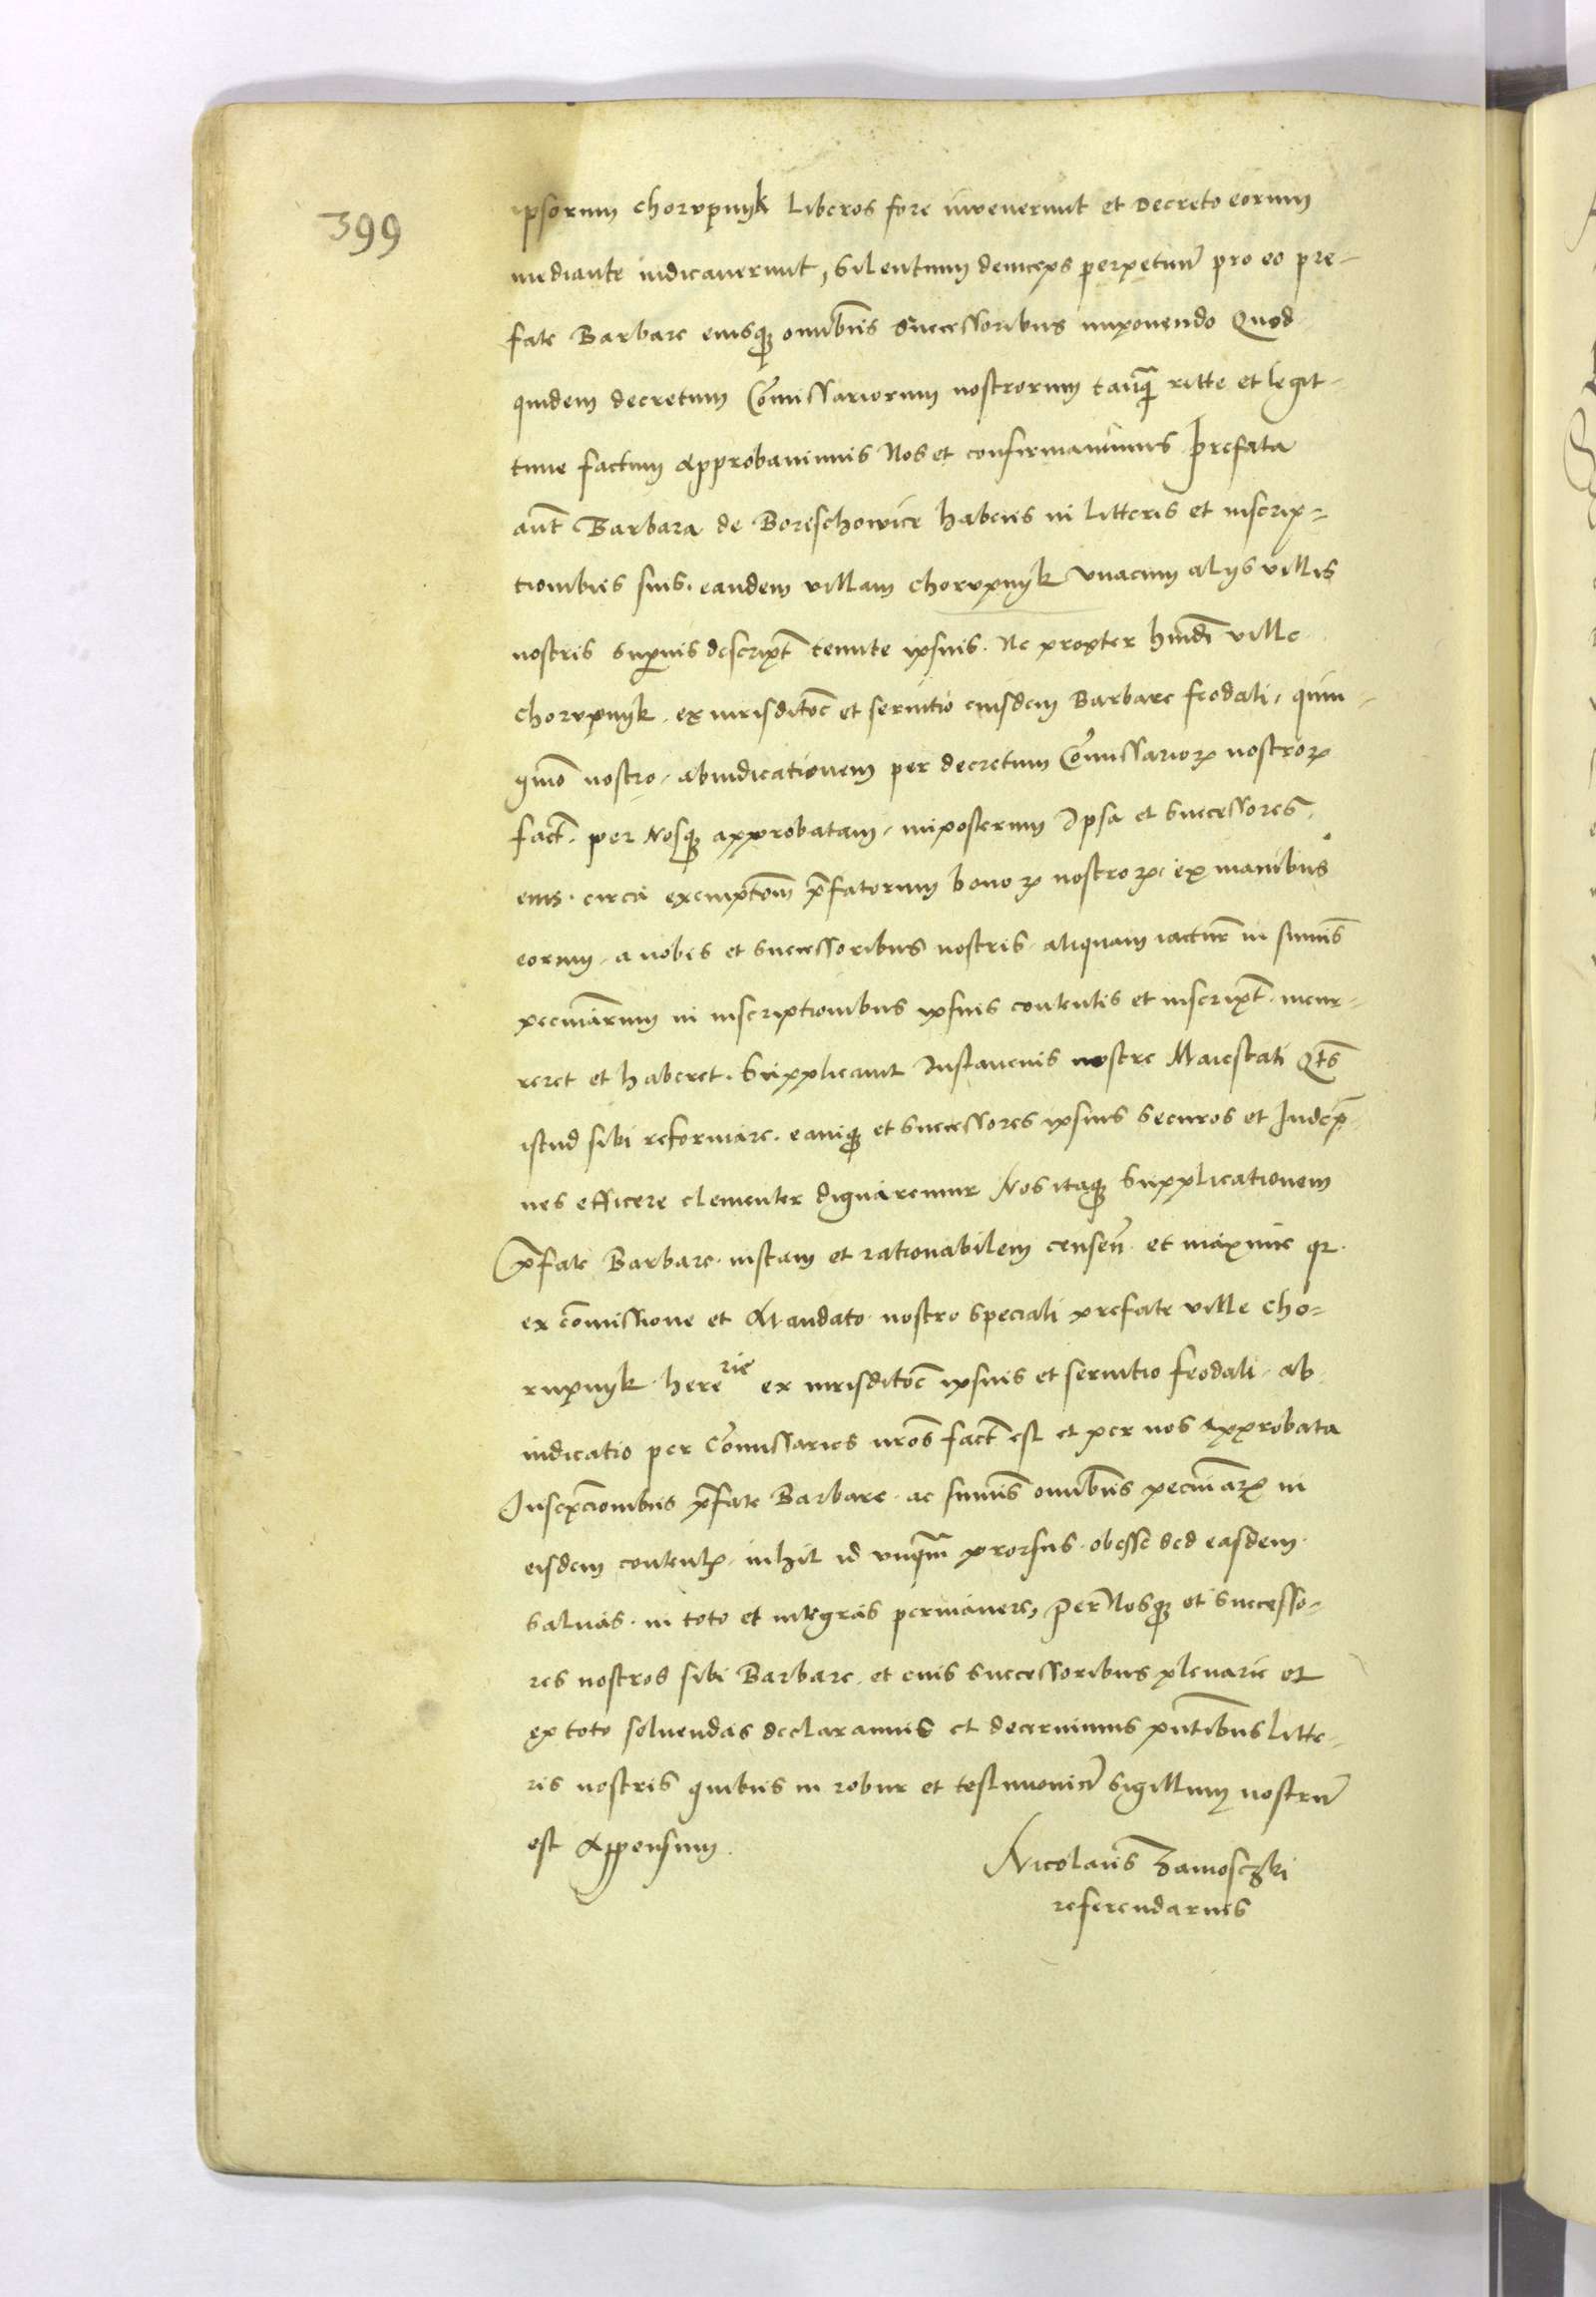 399
ipsorum chorupnyk Liberos fore invenerunt et Decreto eorum
mediante iudicaverunt, Silentium deinceps perpetuū pro eo pre-
fate Barbare eiusqꝫ omībus successoribus imponendo Quod
quidem decretum Cōmissariorum nostrorum tanqꝫ ritte et legit-
time factum Approbavimus Nos et confirmavimus prefata
aūt Barbara de Boreschowicz habens in litteris et inscrip=
tionibus suis. eandem villam chorupnyk vnacum alijs villis
nostris superius descript̄ tenute ipsius. Ne propter hmōi ville
chorupnyk. ex iurisditōe et servitio eiusdem Barbare feodali, quin-
ymō nostro, abiudicationem per decretum Cōmissarioꝝ nostroꝝ
fact̄. per Nosqꝫ approbatam, inposterum Ipsa et Successores
eius. circa exemptōm p̄fatorum bonoꝝ nostroꝝ, ex manibus
eorum, a nobis et successoribus nostris aliquam iacturā in sumīs
pecuniarum in inscriptionibus ipsius contentis et inscript̄. incur-
reret et haberet. Supplicavit Instancius nostre Maiestati Qtūs
istud sibi reformare. eamqꝫ et successores ipsius securos et Indēp-
nes efficere clementer dignaremur Nos itaqꝫ Supplicationem
p̄fate Barbare. iustam et rationabilem censen̄. et maxime qꝛ.
ex cōmissione et Mandato nostro speciali prefate ville cho=
rupnyk. here rie ex iurisditōe ipsius et servitio feodali, ab
iudicatio per Cōmissarios nr̄os fact̄ est et per nos Approbata
Inscrp̄cionibus p̄fate Barbare. ac sumīs omībus pecuniarꝫ in
eisdem contentꝫ. nihil id vnqꝫ prorsus. obesse sed easdem.
salvas. in toto et integras permanere, per Nosqꝫ et Successo-
res nostros sibi Barbare. et eius successoribus plenarie et
ex toto solvendas declaramus et decernimus pn̄tibus litte-
ris nostris quibus in robur et testimoniū Sigillum nostrū
est Appensum.
Nicolaus Zamosczki
referendarius